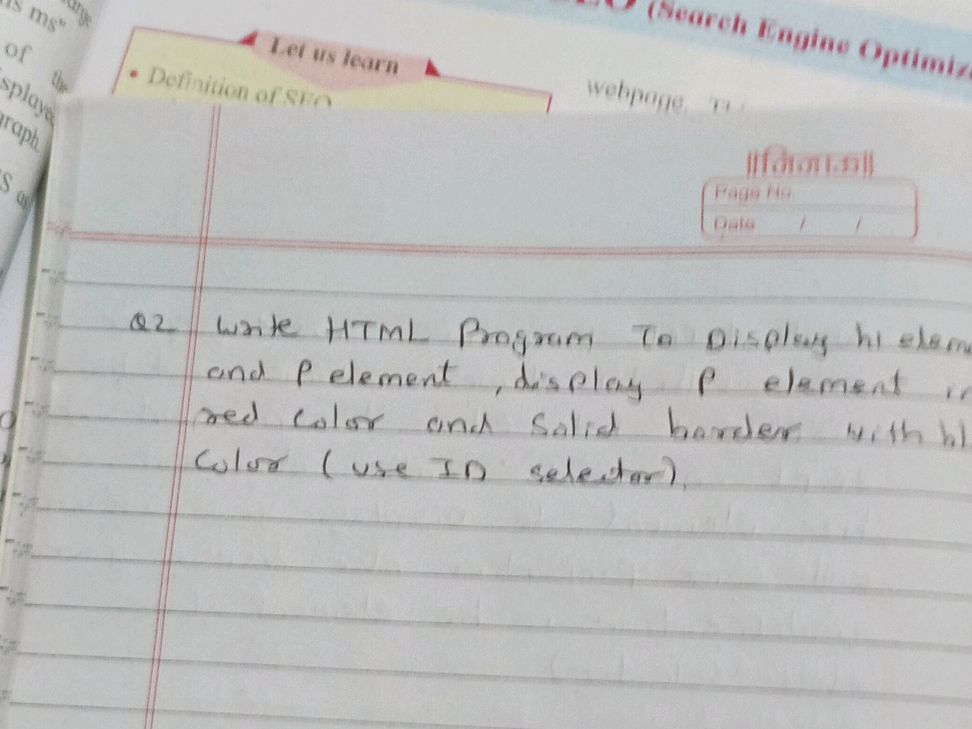 ms"
of the
(Search Engine
Let us learn
• Definition of SEO
webpage.
Page No
Date / /
Q2 Write HTML Program To Display h1
and P element, display P element
red color and Solid border with
Color (use ID selector).